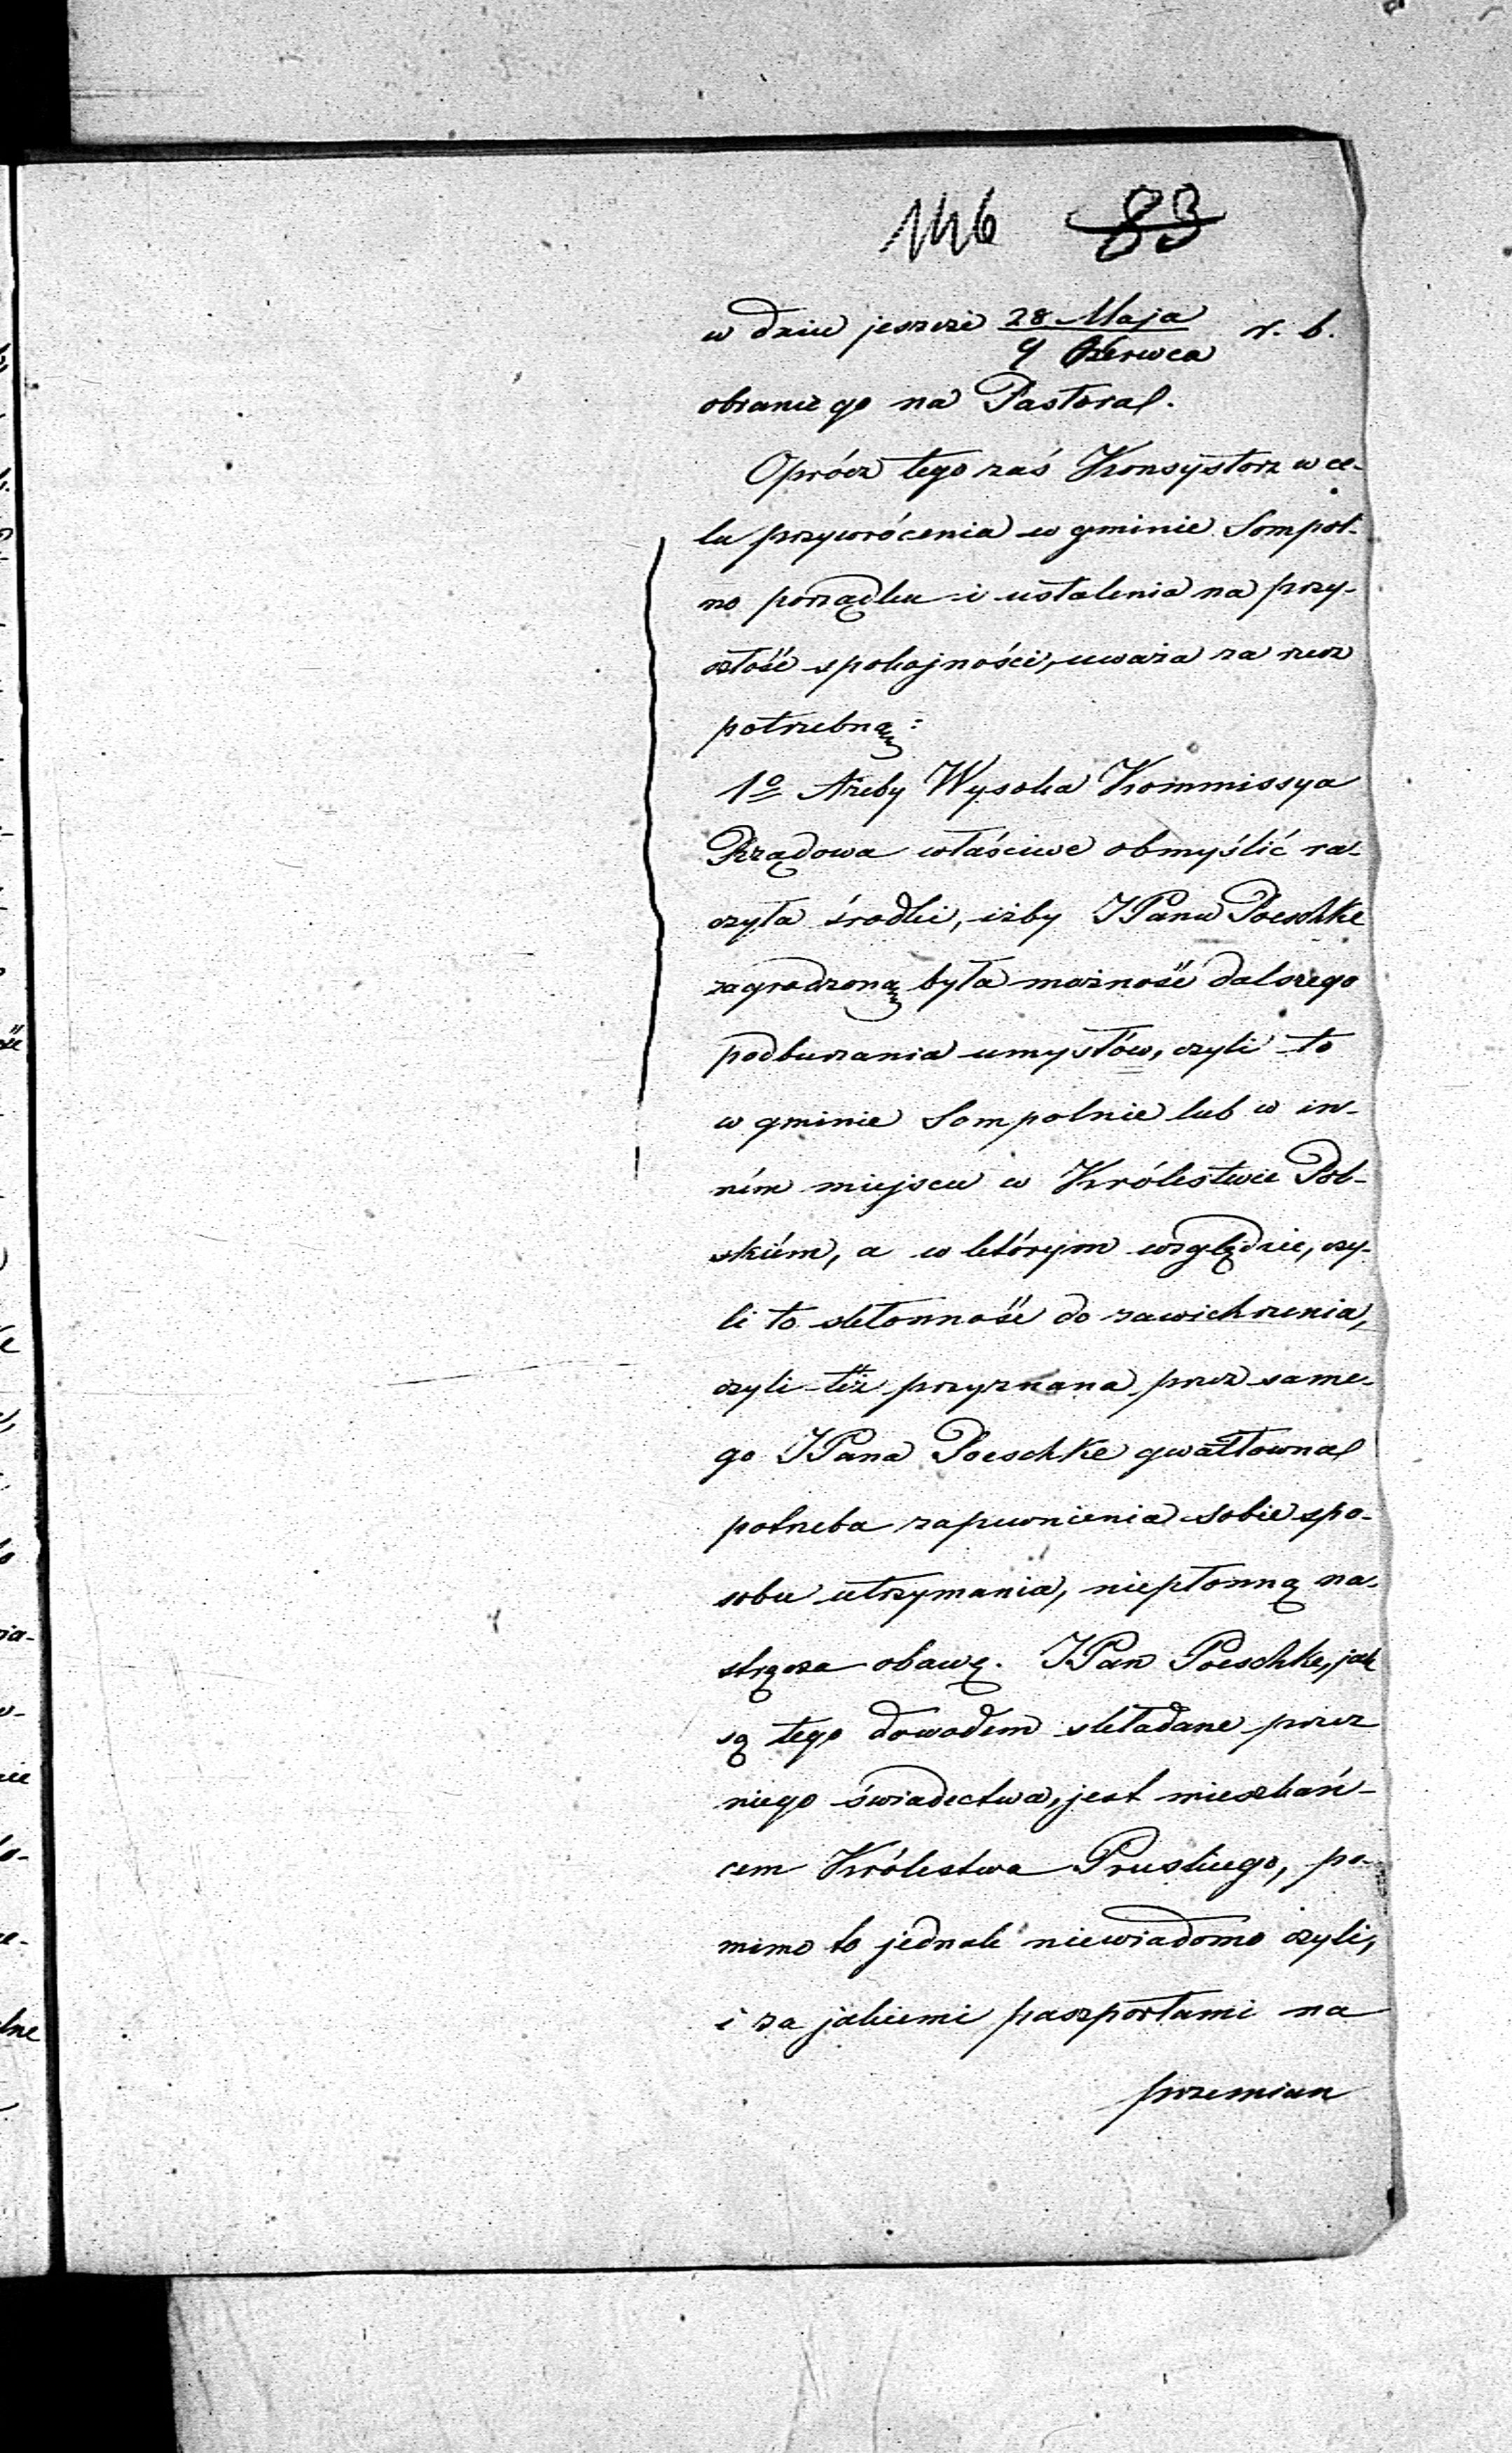 146 83
w dniu jeszcze 28 Maja r. b.
9 Czerwca
obranego na Pastora.
Oprócz tego zaś Konsystorz w ce-
lu przywrócenia w gminie Sompol-
no porządku i ustalenia na przy-
szłość spokojności, uważa za rzecz
potrzebną:
1o Ażeby Wysoka Kommissya
Rządowa właściwe obmyślić ra-
czyła środki, iżby JPanu Poeschke
zagrodzoną była możność dalszego
podburzania umysłów, czyli to
w gminie Sompolnie lub w in-
ném miejscu w Królestwie Pol-
skiém, a w którym względzie, czy-
li to skłonność do zawichrzenia,
czyli też przyznana przez same-
go JPana Poeschke gwałtowna
potrzeba zapewnienia sobie spo-
sobu utrzymania, niepłonną na-
stręcza obawę. JPan Poeschke, jak
są tego dowodem składane przez
niego świadectwa, jest mieszkań-
cem Królestwa Pruskiego, po-
mimo to jednak niewiadomo czyli,
i za jakiemi paszportami na
przemian